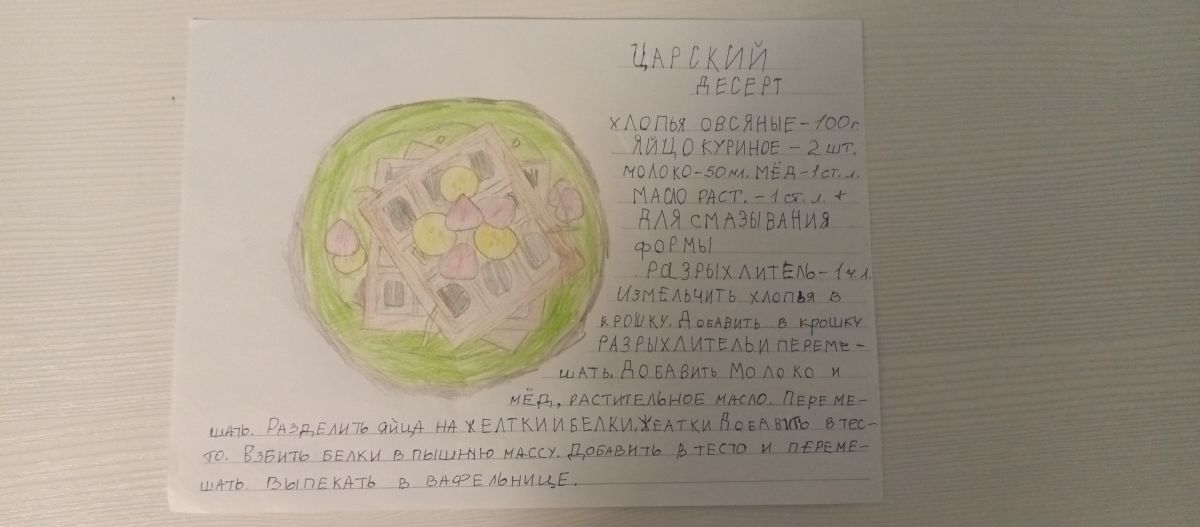 ЦАРСКИЙ
ДЕСЕРТ
ХЛОПЬЯ ОВСЯНЫЕ - 100 г.
ЯЙЦО КУРИНОЕ - 2 шт.
МОЛОКО - 50 мл. МЁД - 1 ст. л.
МАСЛО РАСТ. - 1 ст. л. +
ДЛЯ СМАЗЫВАНИЯ
ФОРМЫ
РАЗРЫХЛИТЕЛЬ - 1 ч. л.
ИЗМЕЛЬЧИТЬ ХЛОПЬЯ В
КРОШКУ. ДОБАВИТЬ В КРОШКУ
РАЗРЫХЛИТЕЛЬ И ПЕРЕМЕ-
ШАТЬ. ДОБАВИТЬ МОЛОКО И
МЁД, РАСТИТЕЛЬНОЕ МАСЛО. ПЕРЕМЕ-
ШАТЬ. РАЗДЕЛИТЬ ЯЙЦА НА ЖЕЛТКИ И БЕЛКИ. ЖЕЛТКИ ДОБАВИТЬ В ТЕС-
ТО. ВЗБИТЬ БЕЛКИ В ПЫШНУЮ МАССУ. ДОБАВИТЬ В ТЕСТО И ПЕРЕМЕ-
ШАТЬ. ВЫПЕКАТЬ В ВАФЕЛЬНИЦЕ.